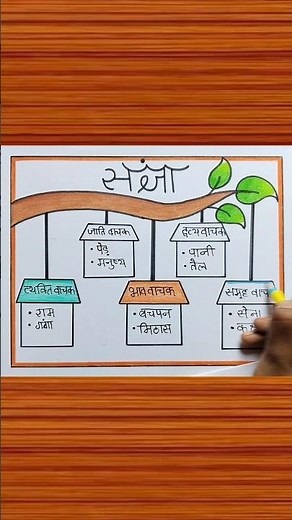 संज्ञा
जाति वाचक
• पेड़
• मनुष्य
द्रव्य वाचक
• पानी
• तेल
व्यक्ति वाचक
• राम
• गंगा
भाव वाचक
• बचपन
• मिठास
समूह वाचक
• सेना